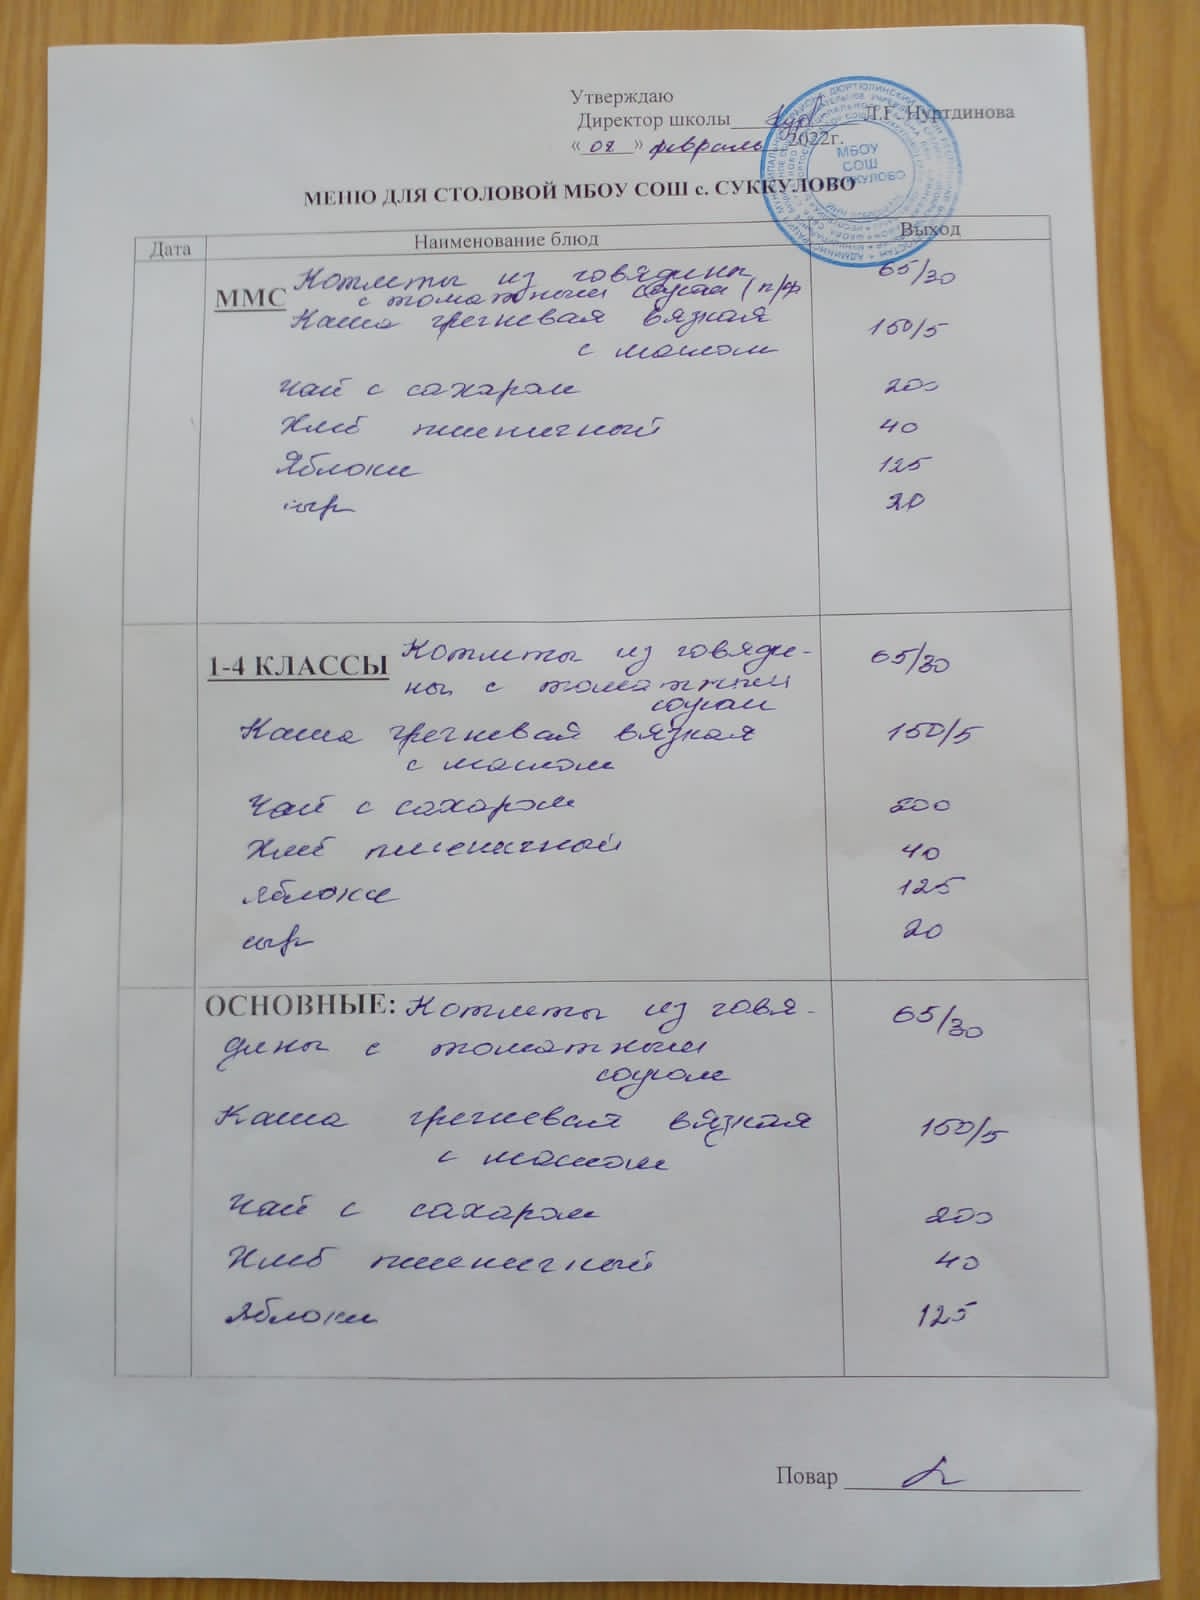 Утверждаю
Директор школы Л.Г. Нуртдинова
«08» февраль 2022г.
МБОУ
СОШ
СУККУЛОВО
МЕНЮ ДЛЯ СТОЛОВОЙ МБОУ СОШ с. СУККУЛОВО
Дата Наименование блюд Выход
ММС Котлеты из говядины 65/30
с томатным соусом (п/ф
Каша гречневая вязкая 150/5
с маслом
Чай с сахаром 200
Хлеб пшеничный 40
Яблоки 125
сыр 20
1-4 КЛАССЫ Котлеты из говяди- 65/30
ны с томатным
соусом
Каша гречневая вязкая 150/5
с маслом
Чай с сахаром 200
Хлеб пшеничный 40
яблоки 125
сыр 20
ОСНОВНЫЕ: Котлеты из говя- 65/30
дины с томатным
соусом
Каша гречневая вязкая 150/5
с маслом
Чай с сахаром 200
Хлеб пшеничный 40
Яблоки 125
Повар